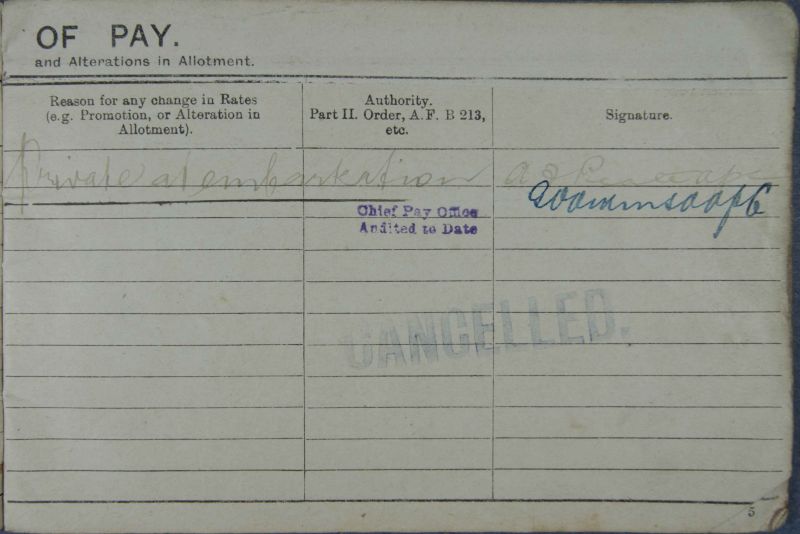 OF PAY.
and Alterations in Allotment.
Reason for any change in Rates
(e.g. Promotion, or Alteration in
Allotment).
Authority.
Part II. Order, A.F. B 213,
etc.
Signature.
Private at embarkation
Chief Pay Office
Audited to Date
CANCELLED.
5